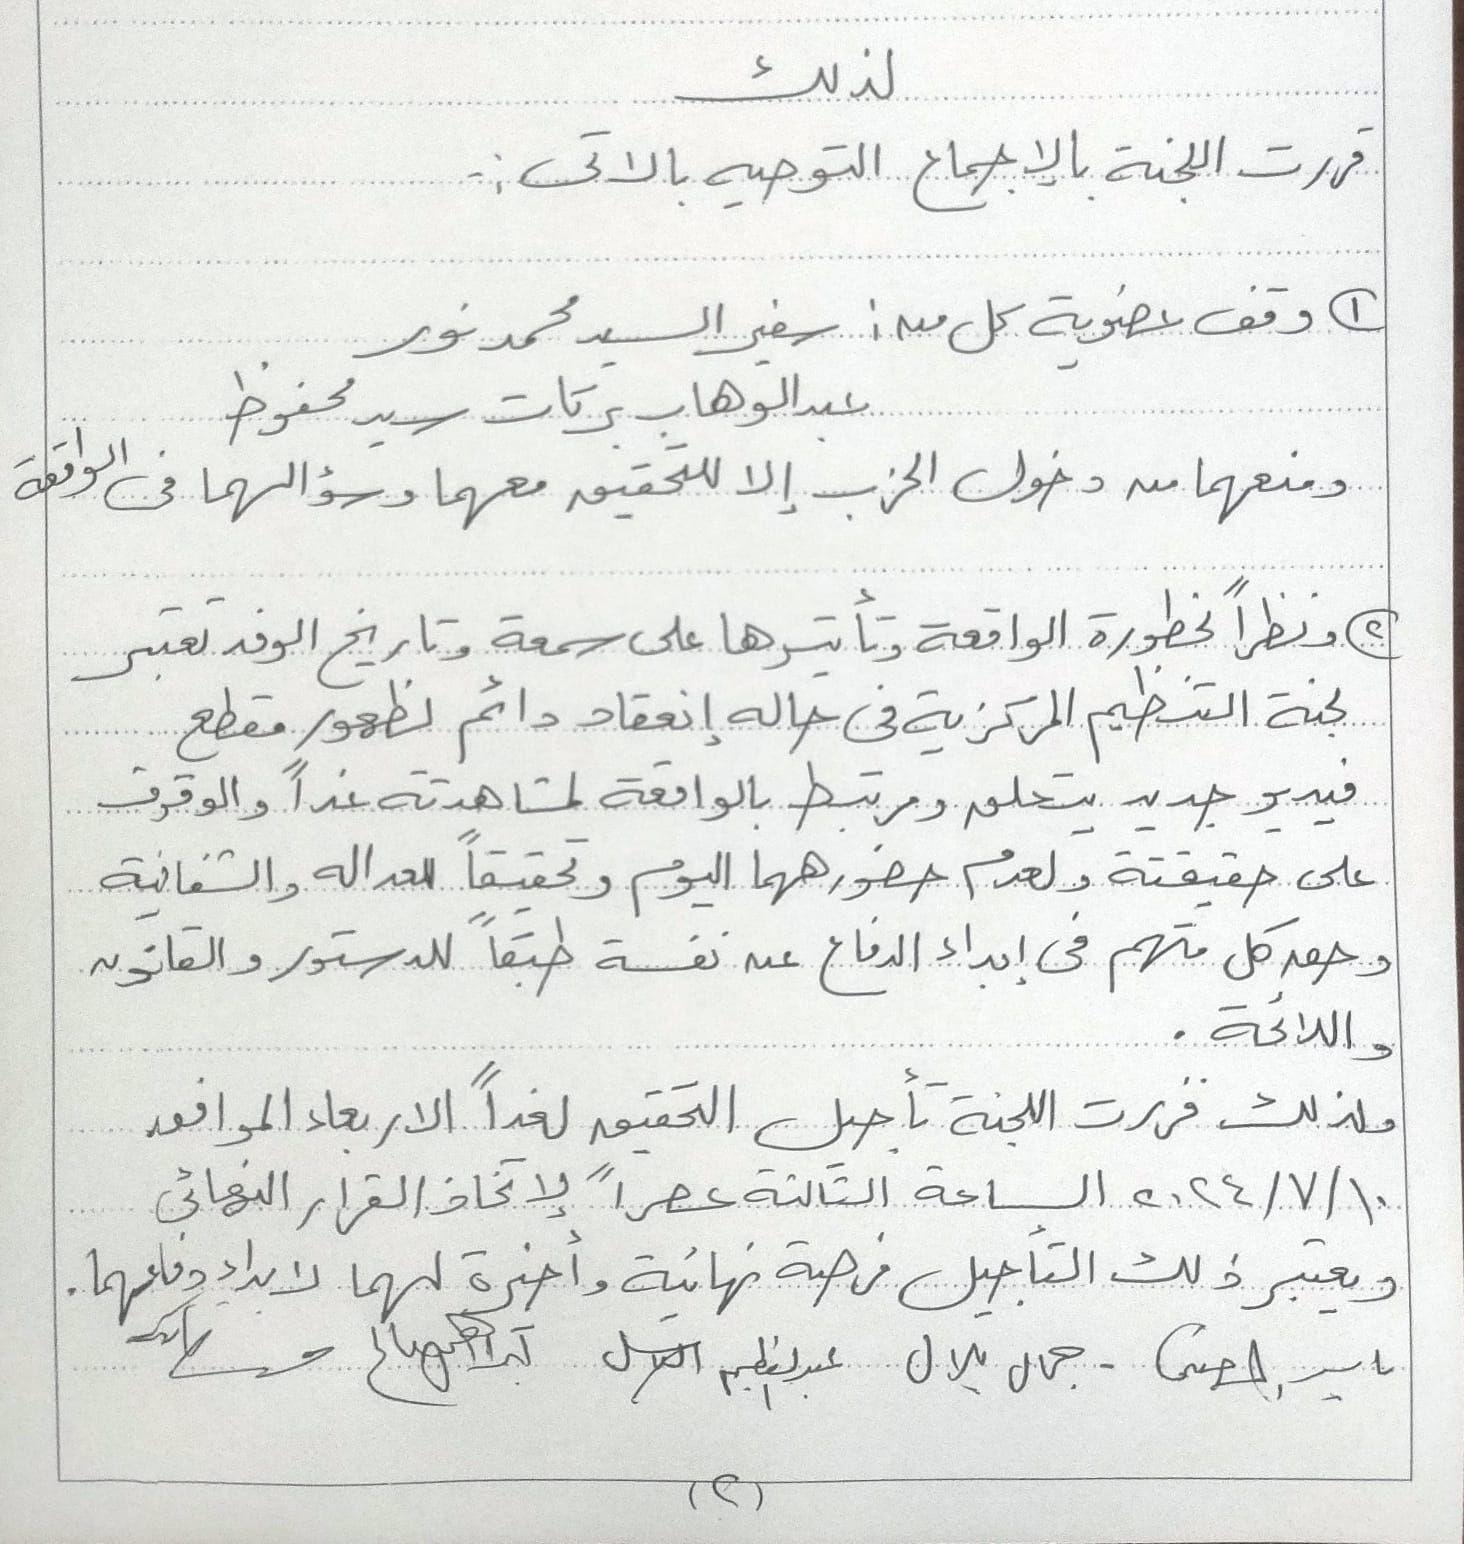 لذلك
قررت اللجنة بالإجماع التوصيه بالاتى :-
١ وقف عضوية كل من : سفير السيد محمد نور
عبدالوهاب بركات سيد محفوظ
ومنعهما من دخول الحزب إلا للتحقيق معهما وسؤالهما فى الواقعة
٢ ونظراً لخطورة الواقعة وتأثيرها على سمعة وتاريخ الوفد تعتبر
لجنة التنظيم المركزية فى حاله إنعقاد دائم لظهور مقطع
فيديو جديد يتعلق ومرتبط بالواقعة لمشاهدتة غداً والوقوف
على حقيقتة ولعدم حضورهما اليوم وتحقيقاً للعداله والشفافية
وحق كل متهم فى إبداء الدفاع عن نفسة طبقاً للدستور والقانون
واللائحة .
ولذلك قررت اللجنة تأجيل التحقيق لغداً الاربعاء الموافق
١٠/٧/٢٠٢٤ الساعة الثالثة عصراً لإتخاذ القرار النهائى
ويعتبر ذلك التأجيل فرصة نهائية وأخيرة لهما لابداء دفاعهما .
ياسر - جمال بلال عبدالعظيم
(٢)